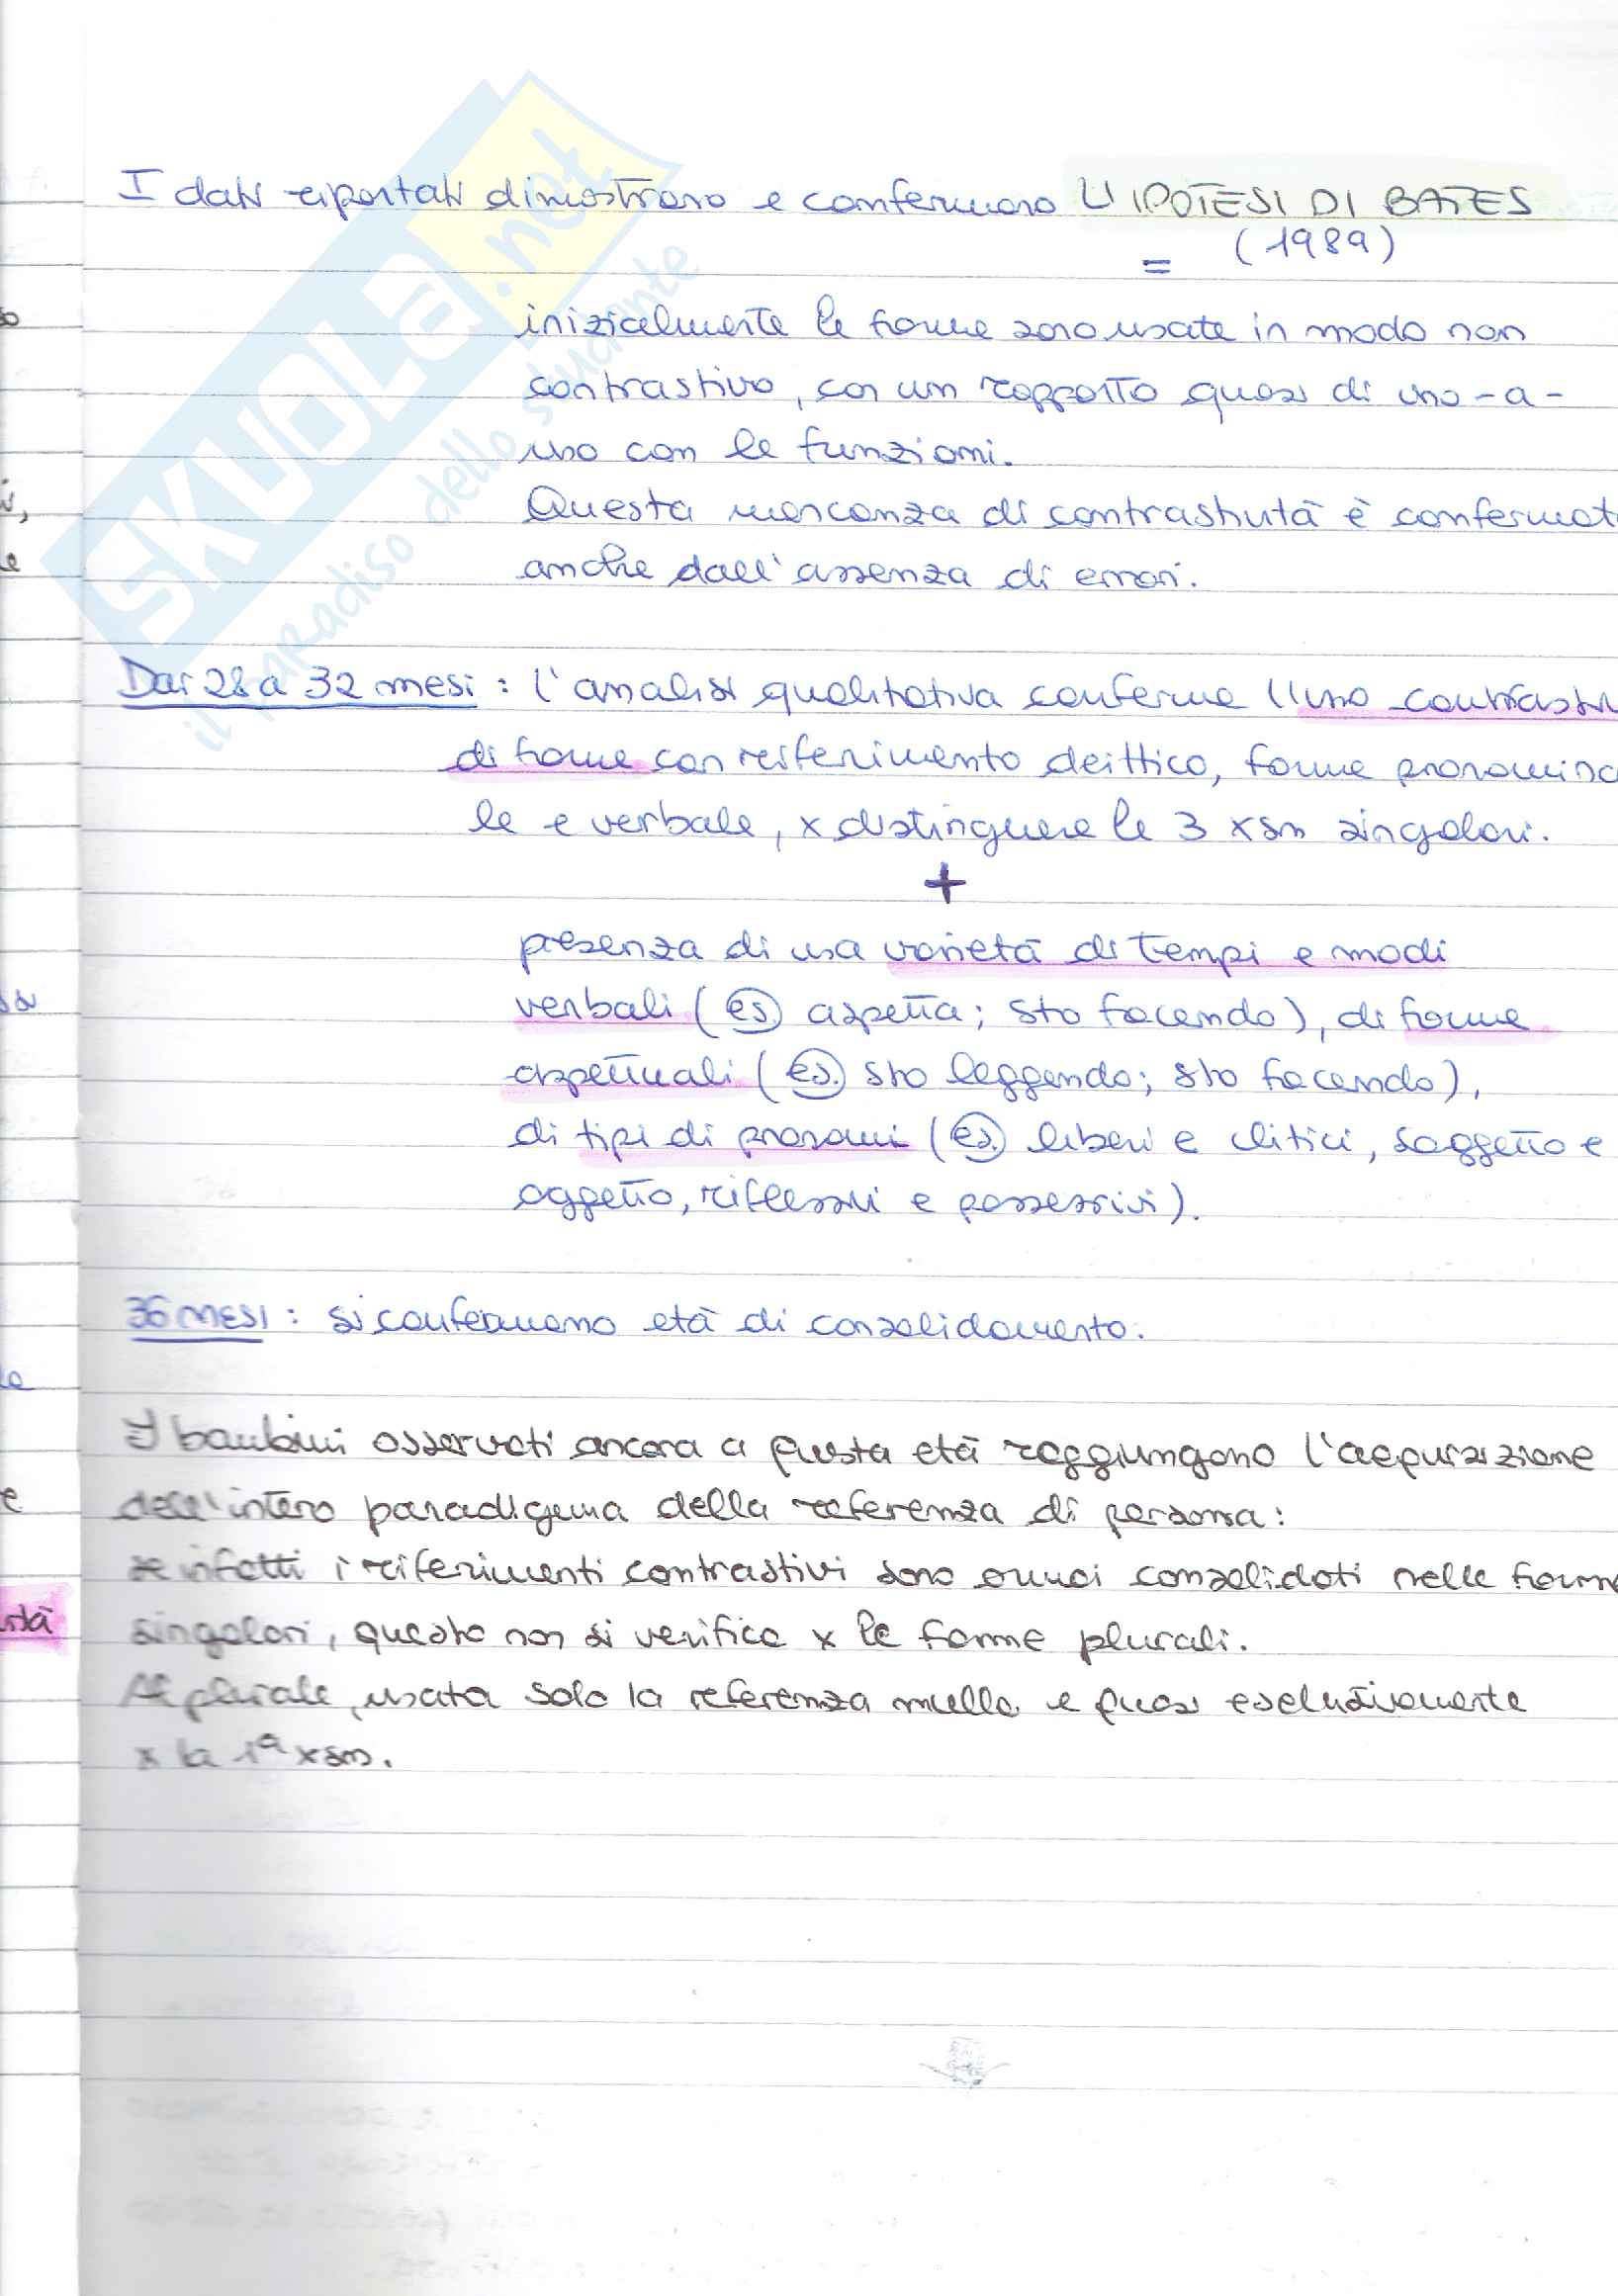 SKUOLA.net
il paradiso dello studente
I dati riportati dimostrano e confermano L'IPOTESI DI BATES
= (1989)
inizialmente le forme sono usate in modo non
contrastivo, con un rapporto quasi di uno-a-
uno con le funzioni.
Questa mancanza di contrastività è confermat
anche dall'assenza di errori.
Dai 28 a 32 mesi : l'analisi qualitativa conferma l'uso contrasti
di forme con riferimento deittico, forme pronomina
le e verbale, x distinguere le 3 xsn singolari.
+
presenza di una varietà di tempi e modi
verbali (es aspetta; sto facendo), di forme
aspettuali (es. sto leggendo; sto facendo),
di tipi di pronomi (es. liberi e clitici, soggetto e
oggetto, riflessivi e possessivi).
36 MESI : si confermano età di consolidamento.
I bambini osservati ancora a questa età raggiungono l'acquisizione
dell'intero paradigma della referenza di persona:
se infatti i riferimenti contrastivi sono ormai consolidati nelle forme
singolari, questo non si verifica x le forme plurali.
Al plurale, usata solo la referenza nulla e quasi esclusivamente
x la 1ª xsn.